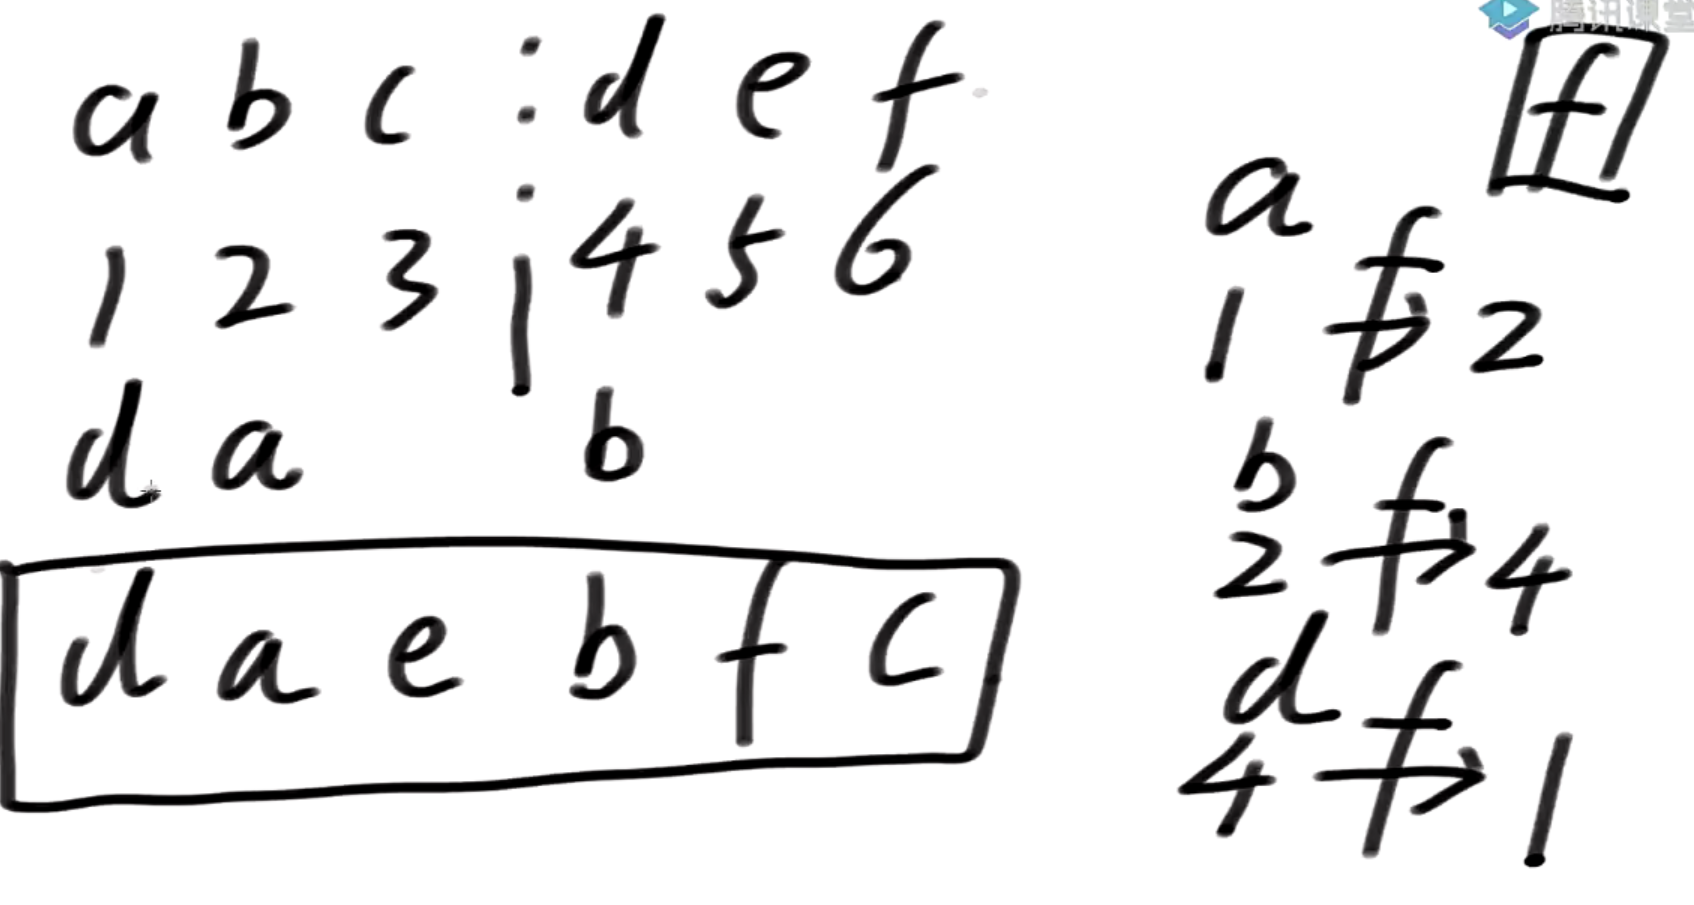 腾讯课堂
a b c d e f
1 2 3 4 5 6
d a b
d a e b f c
f
a
1 f→ 2
b
2 f→ 4
d
4 f→ 1